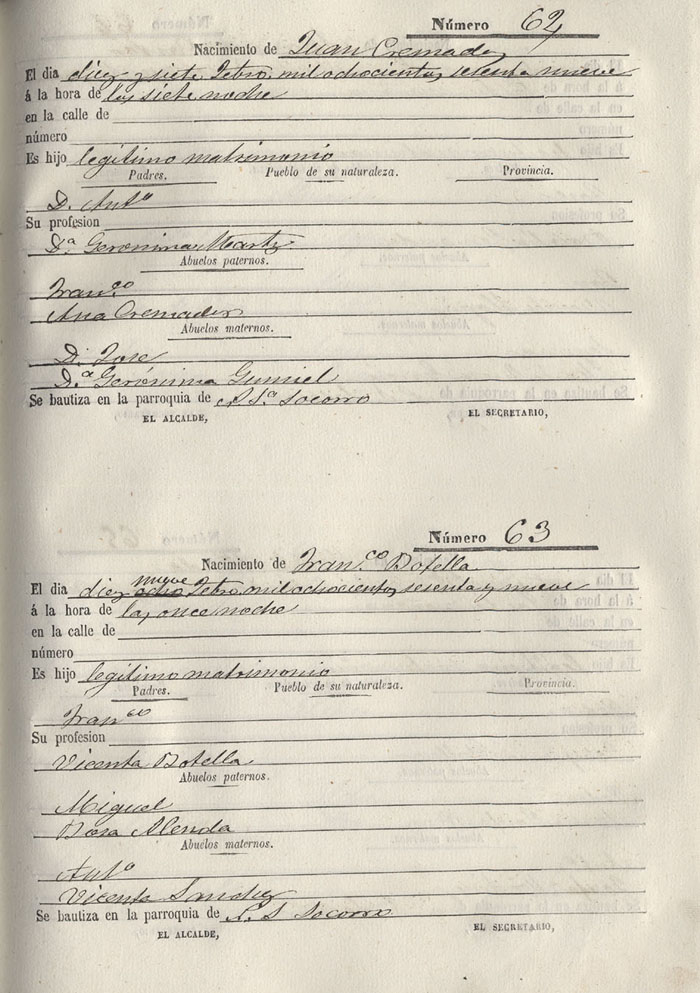 Número 62
Nacimiento de Juan Cremades
El dia diez y siete Febro. mil ochocientos sesenta nueve
á la hora de las siete noche
en la calle de
número
Es hijo legítimo matrimonio
Padres. Pueblo de su naturaleza. Provincia.
D. Anto
Su profesion
Da. Geronima Martz
Abuelos paternos.
Fran.co
Ana Cremades
Abuelos maternos.
D. Jose
D.a Gerónima Gumiel
Se bautiza en la parroquia de N Sa. Socorro
EL ALCALDE, EL SECRETARIO,
Número 63
Nacimiento de Fran.co Botella
El dia diez ocho nueve Febro. mil ochocientos sesenta y nueve
á la hora de las once noche
en la calle de
número
Es hijo legítimo matrimonio
Padres. Pueblo de su naturaleza. Provincia.
Franco
Su profesion
Vicenta Botella
Abuelos paternos.
Miguel
Alenda
Abuelos maternos.
Anto
Vicenta Sanchez
Se bautiza en la parroquia de N. S Socorro
EL ALCALDE, EL SECRETARIO,